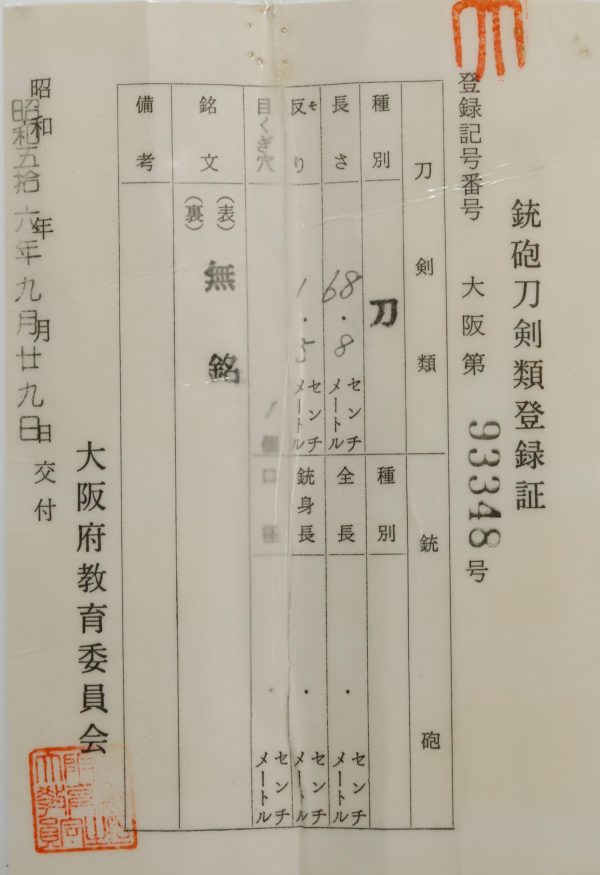 銃砲刀剣類登録証
登録記号番号 大阪第 93348 号
刀剣類
種別 刀
長さ 68.8 センチメートル
反り そ 1.5 センチメートル
目くぎ穴 1 個
銘文 (表) (裏) 無銘
備考
銃砲
種別
全長 . センチメートル
銃身長 . センチメートル
口径 . センチメートル
昭和 年 月 日 交付
昭和五拾六年九月廿九日
大阪府教育委員会